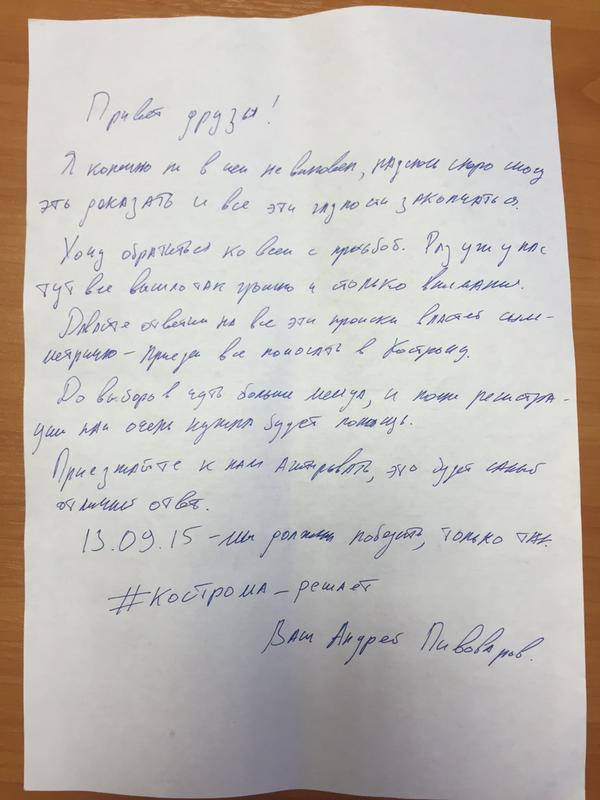 Привет друзья!
Я конечно ни в чем не виновен, надеюсь скоро смогу
это доказать и все эти глупости закончаться.
Хочу обратиться ко всем с просьбой. Раз уж у нас
тут все вышло так громко и столько внимания.
Давайте ответим на все эти происки властей сим-
метрично - приедем все помогать в Кострому.
До выборов чуть больше месяца, и после регистра-
ции нам очень нужна будет помощь.
Приезжайте к нам агитировать, это будет самый
отличный ответ.
13.09.15 - мы должны победить, только так.
#КОСТРОМА_решает
Ваш Андрей Пивоваров.